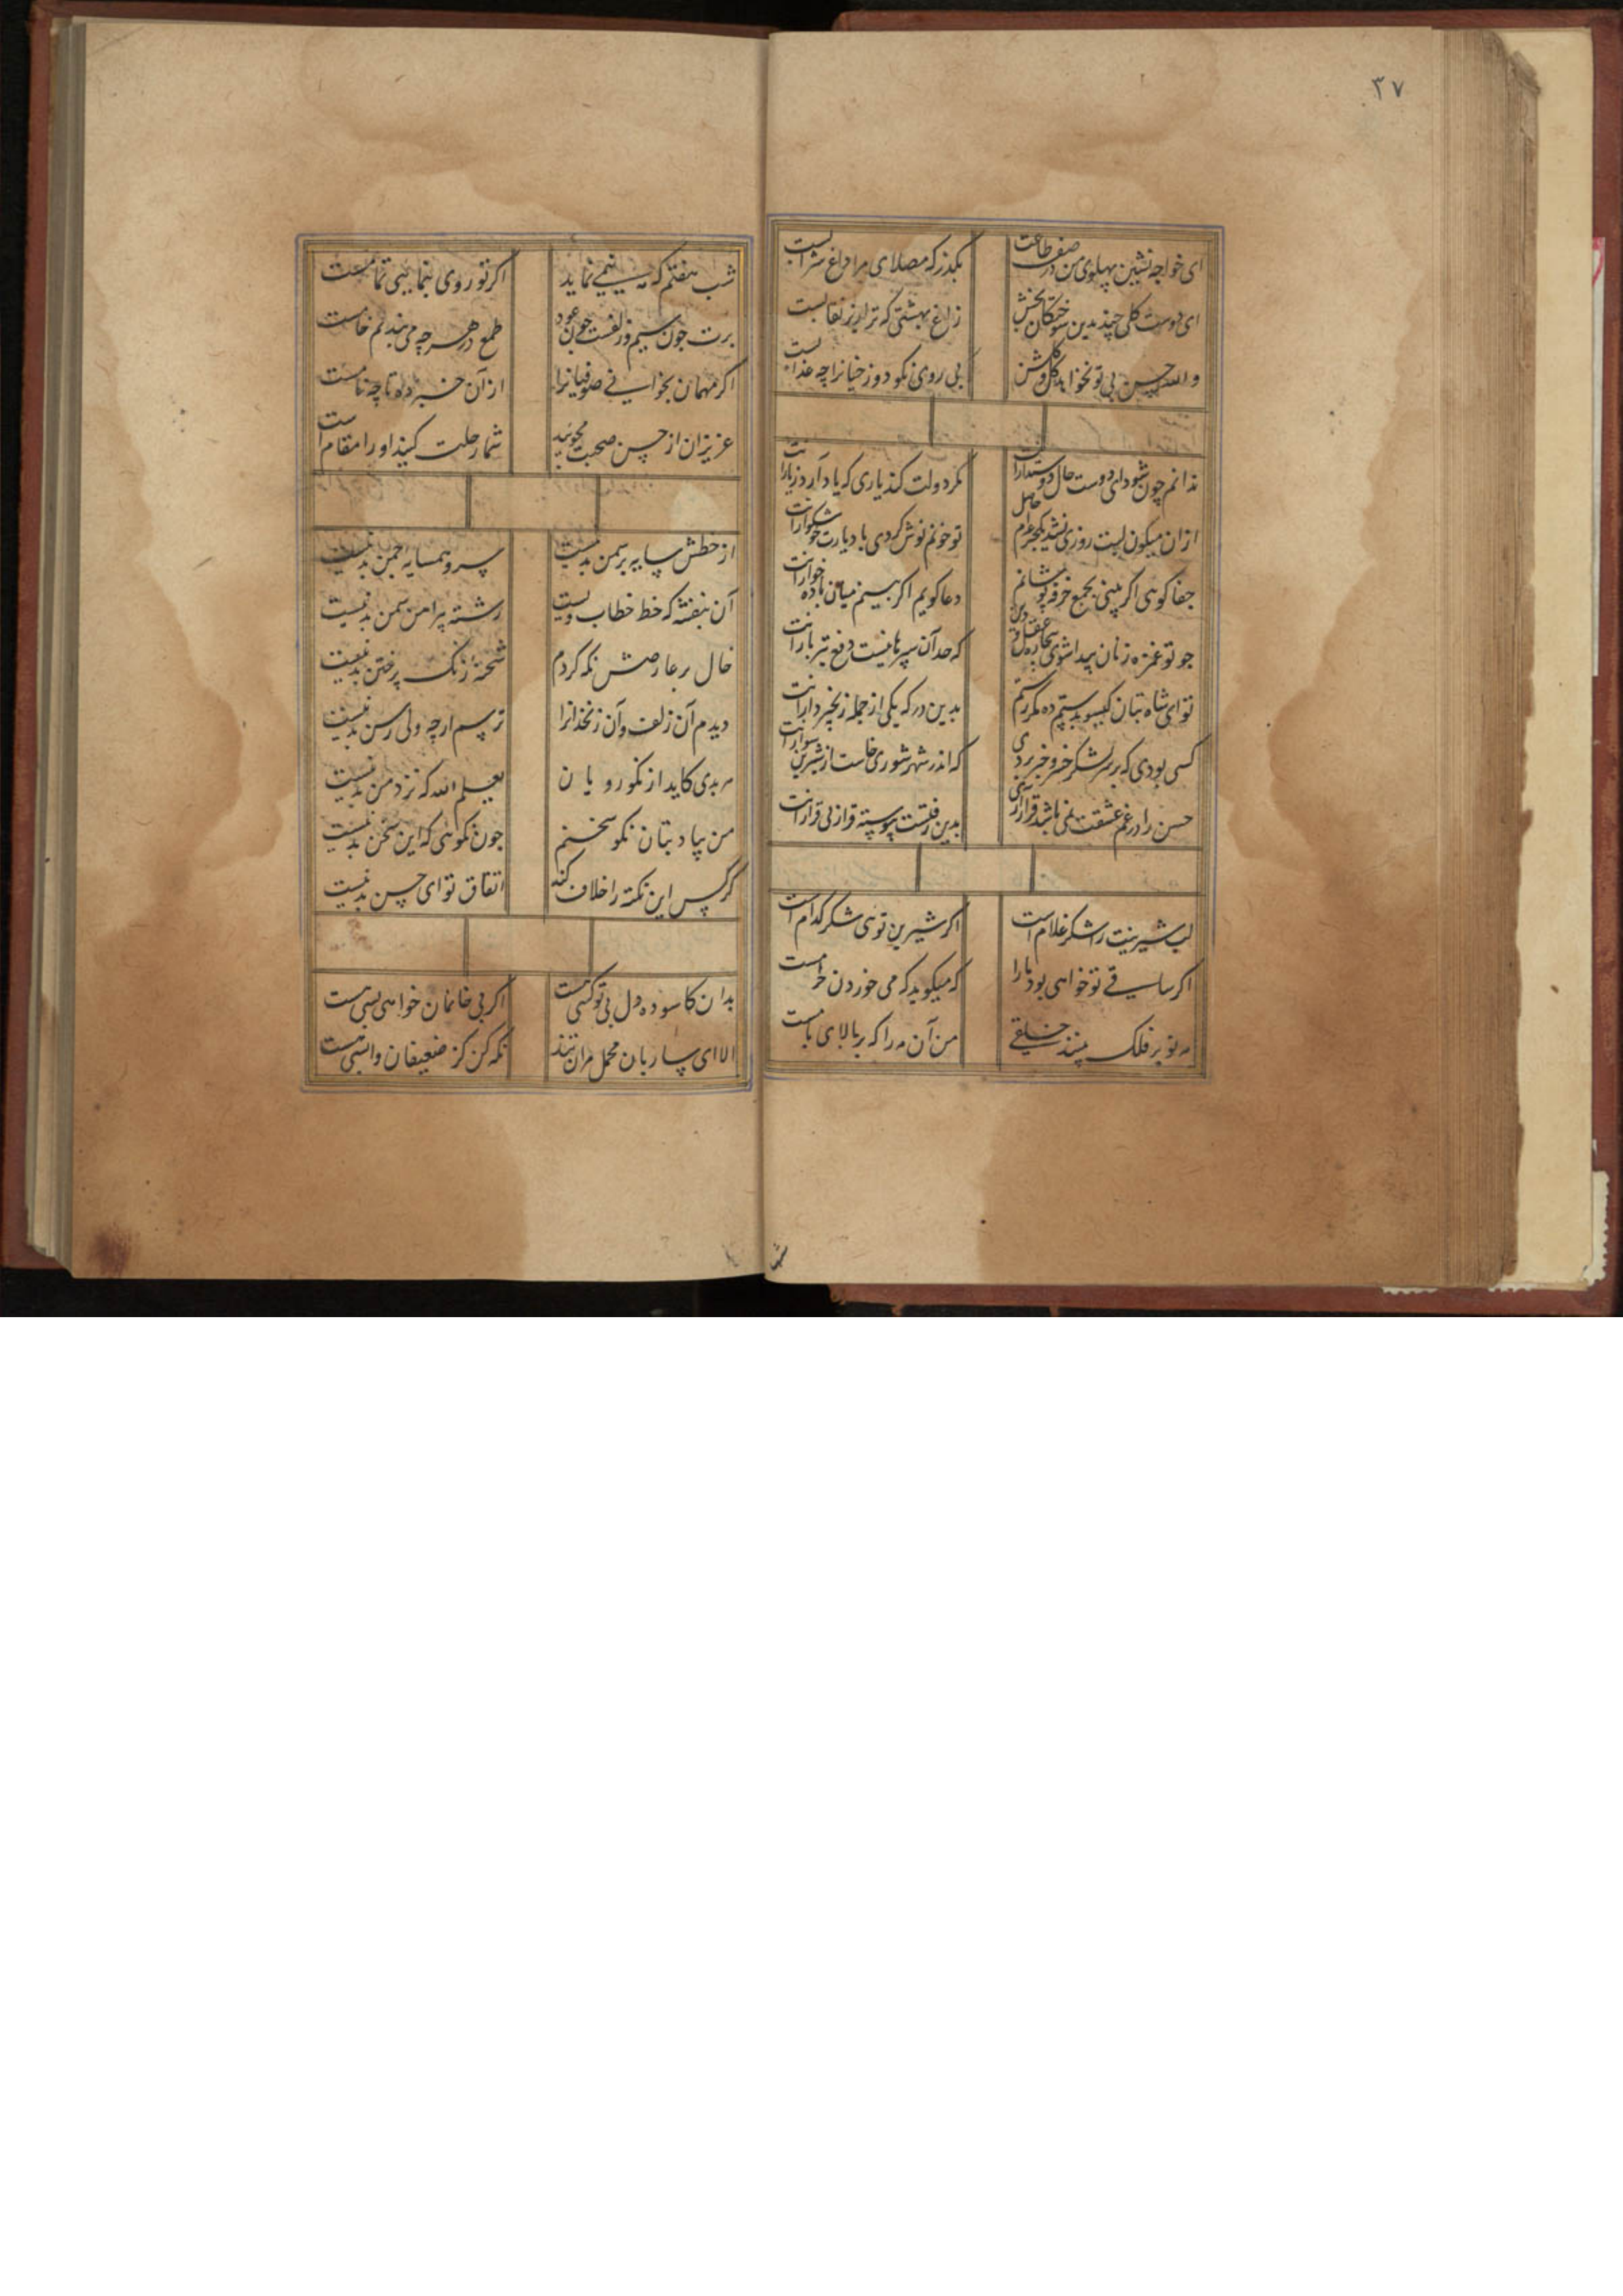 ۳۷
ای خواجه نشین پهلوی من در صف طاعت بکذر که مصلای مرا داغ شرابست
ای دوست کلی چند بدین سوختکان بخش زاغ بهشتی که ترا زیر نقابست
والله حسن بی تو نخواهد کل و کلشن بی روی نکو دوزخیانرا چه عذابست
ندانم چون شود ای دوست حال دوستدارانت مکر دولت کند یاری که یاد آرد ز یارانت
ازان میکون لبت روزی نشد یکجرعه‌ام حاصل تو خونم نوش کردی باد یارت خوشکوارانت
جفا کوئی اکر بینی بجمع خرقه پوشانم دعا کویم اکر بینم میان باده خوارانت
جو تو غمزه زنان پیدا شوی بیچاره عقل و دین که حد آن سپرها نیست دفع تیر بارانت
تو ای شاه بتان کیسو بدستم ده مکر رستم بدین در که یکی از جمله زنجیر دارانت
کسی بودی که بر لشکر خسرو خبر بردی که اندر شهر شوری خاست از شیرین سوارانت
حسن را در غم عشقت نمی باشد قرار آری بدین رفتست پیوسته قرار بی قرارانت
لب شیرینت را شکر غلام است اکر شیرین توئی شکر کدام است
اکر ساقی تو خواهی بود ما را که میکوید که می خوردن حرامست
مه نو بر فلک بینند خلقی من آن مه را که بر بالای بامست
شب هفتم که مه نیمی نماید اکر تو روی بنمائی تمامست
برت جون سیم و زلفت جون عود طمع در هر چه می بندم خامست
اکر مهمان بخوانی صوفیانرا از آن خبر ده تا چه نامست
عزیزان از حسن صحبت مجوئید شما رحلت کنید او را مقام است
از خطش سایه بر سمن بد نیست سرو همسایه چمن بد نیست
آن بنفشه که خط خطاب ویست رشته پیرامن سمن بد نیست
خال بر عارضش نکه کردم شحنه زنک بر ختن بد نیست
دیدم آن زلف و آن زنخدانرا ترسم ار چه ولی رسن بد نیست
هر بدی کاید از نکورویان یعلم الله که نزد من بد نیست
من بیاد بتان نکو سخنم جون نکوئی که این سخن بد نیست
کر کس این نکته را خلاف کند اتفاق تو ای حسن بد نیست
بدان کاسوده دل بی تو کسی هست اکر بی خانمان خواهی بسی هست
الا ای ساربان محمل مران تند نکه کن کز ضعیفان واپسی هست